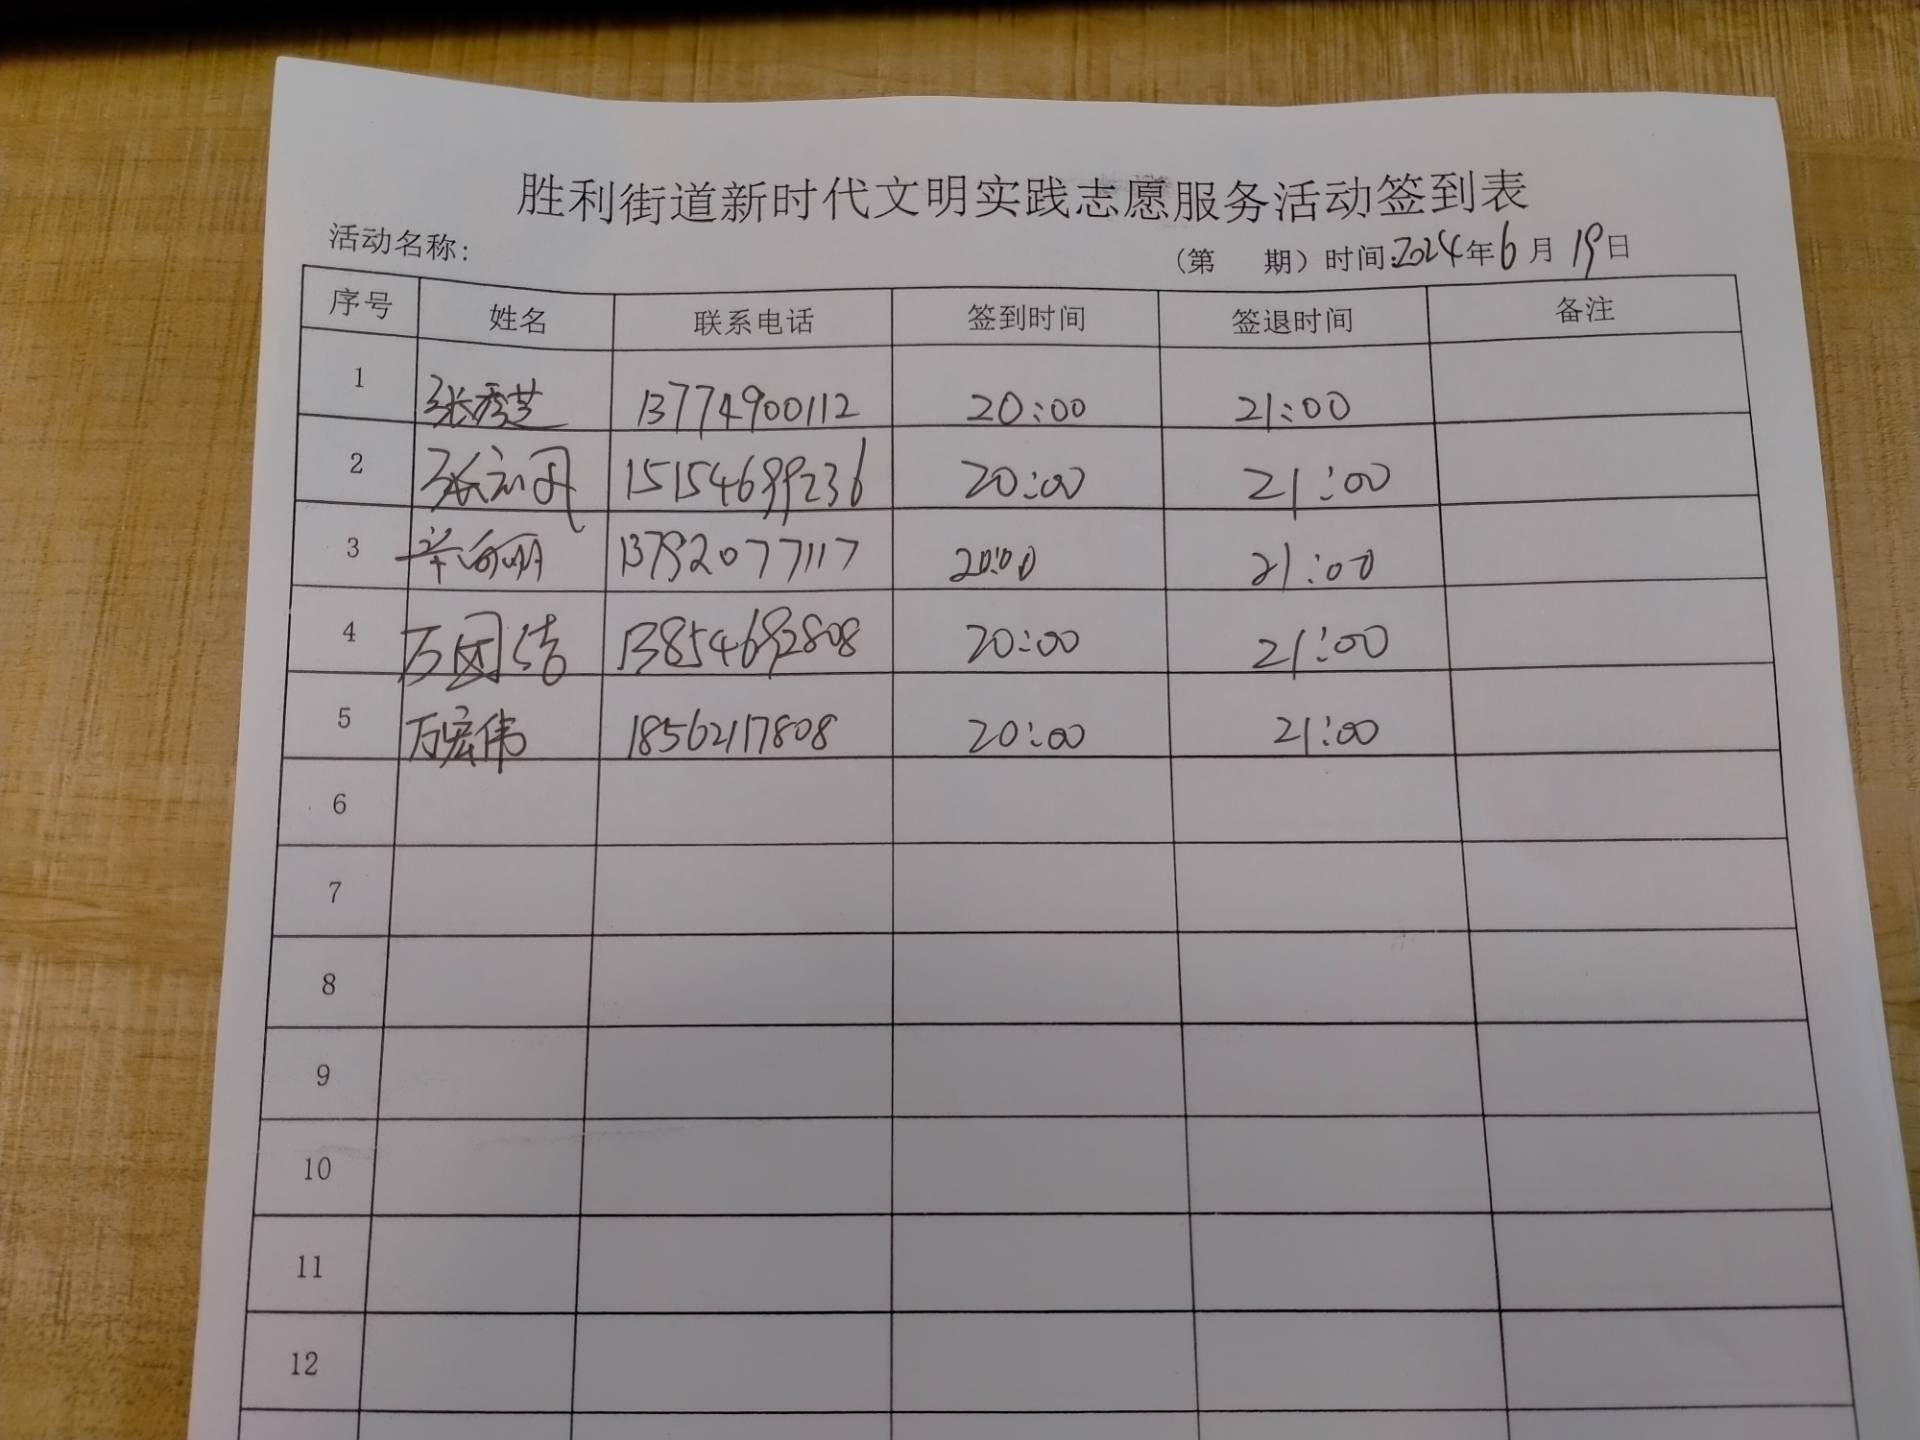 胜利街道新时代文明实践志愿服务活动签到表
活动名称: (第 期) 时间:2024年6月19日
序号 姓名 联系电话 签到时间 签退时间 备注
1 张秀芝 13774900112 20:00 21:00
2 15154699236 20:00 21:00
3 13792077117 20:00 21:00
4 万团结 13854692808 20:00 21:00
5 万宏伟 18562117808 20:00 21:00
6
7
8
9
10
11
12